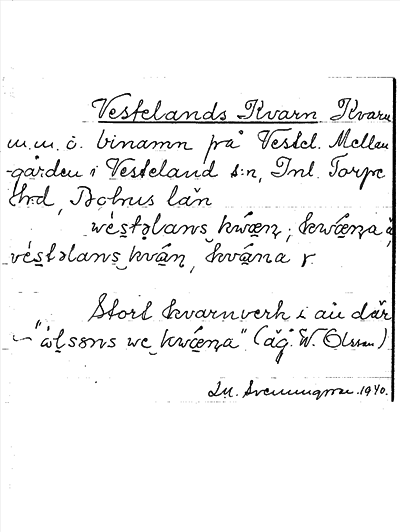 Vestelands Kvarn Kvarn
m.m. o. binamn på Vestel. Mellan
-gården i Vesteland s:n, Inl. Torpe
Hrd, Bohus län
wéstəlans kwæ̨ņ; kwæ̨ņa ä,
véstəlans kvą́ņ, kvą́na r
Stort kvarnverk i ån där
"ólsəns we kwæ̨ņa" (äg. W. Olsson)
1940.